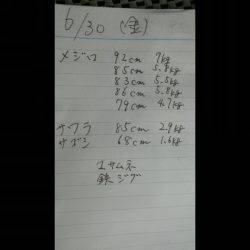 6/30 (金)
メジロ 92cm 7kg
85cm 5.9kg
83cm 5.5kg
86cm 5.8kg
79cm 4.7kg
サワラ 85cm 2.9kg
サゴシ 68cm 1.6kg
ジグ